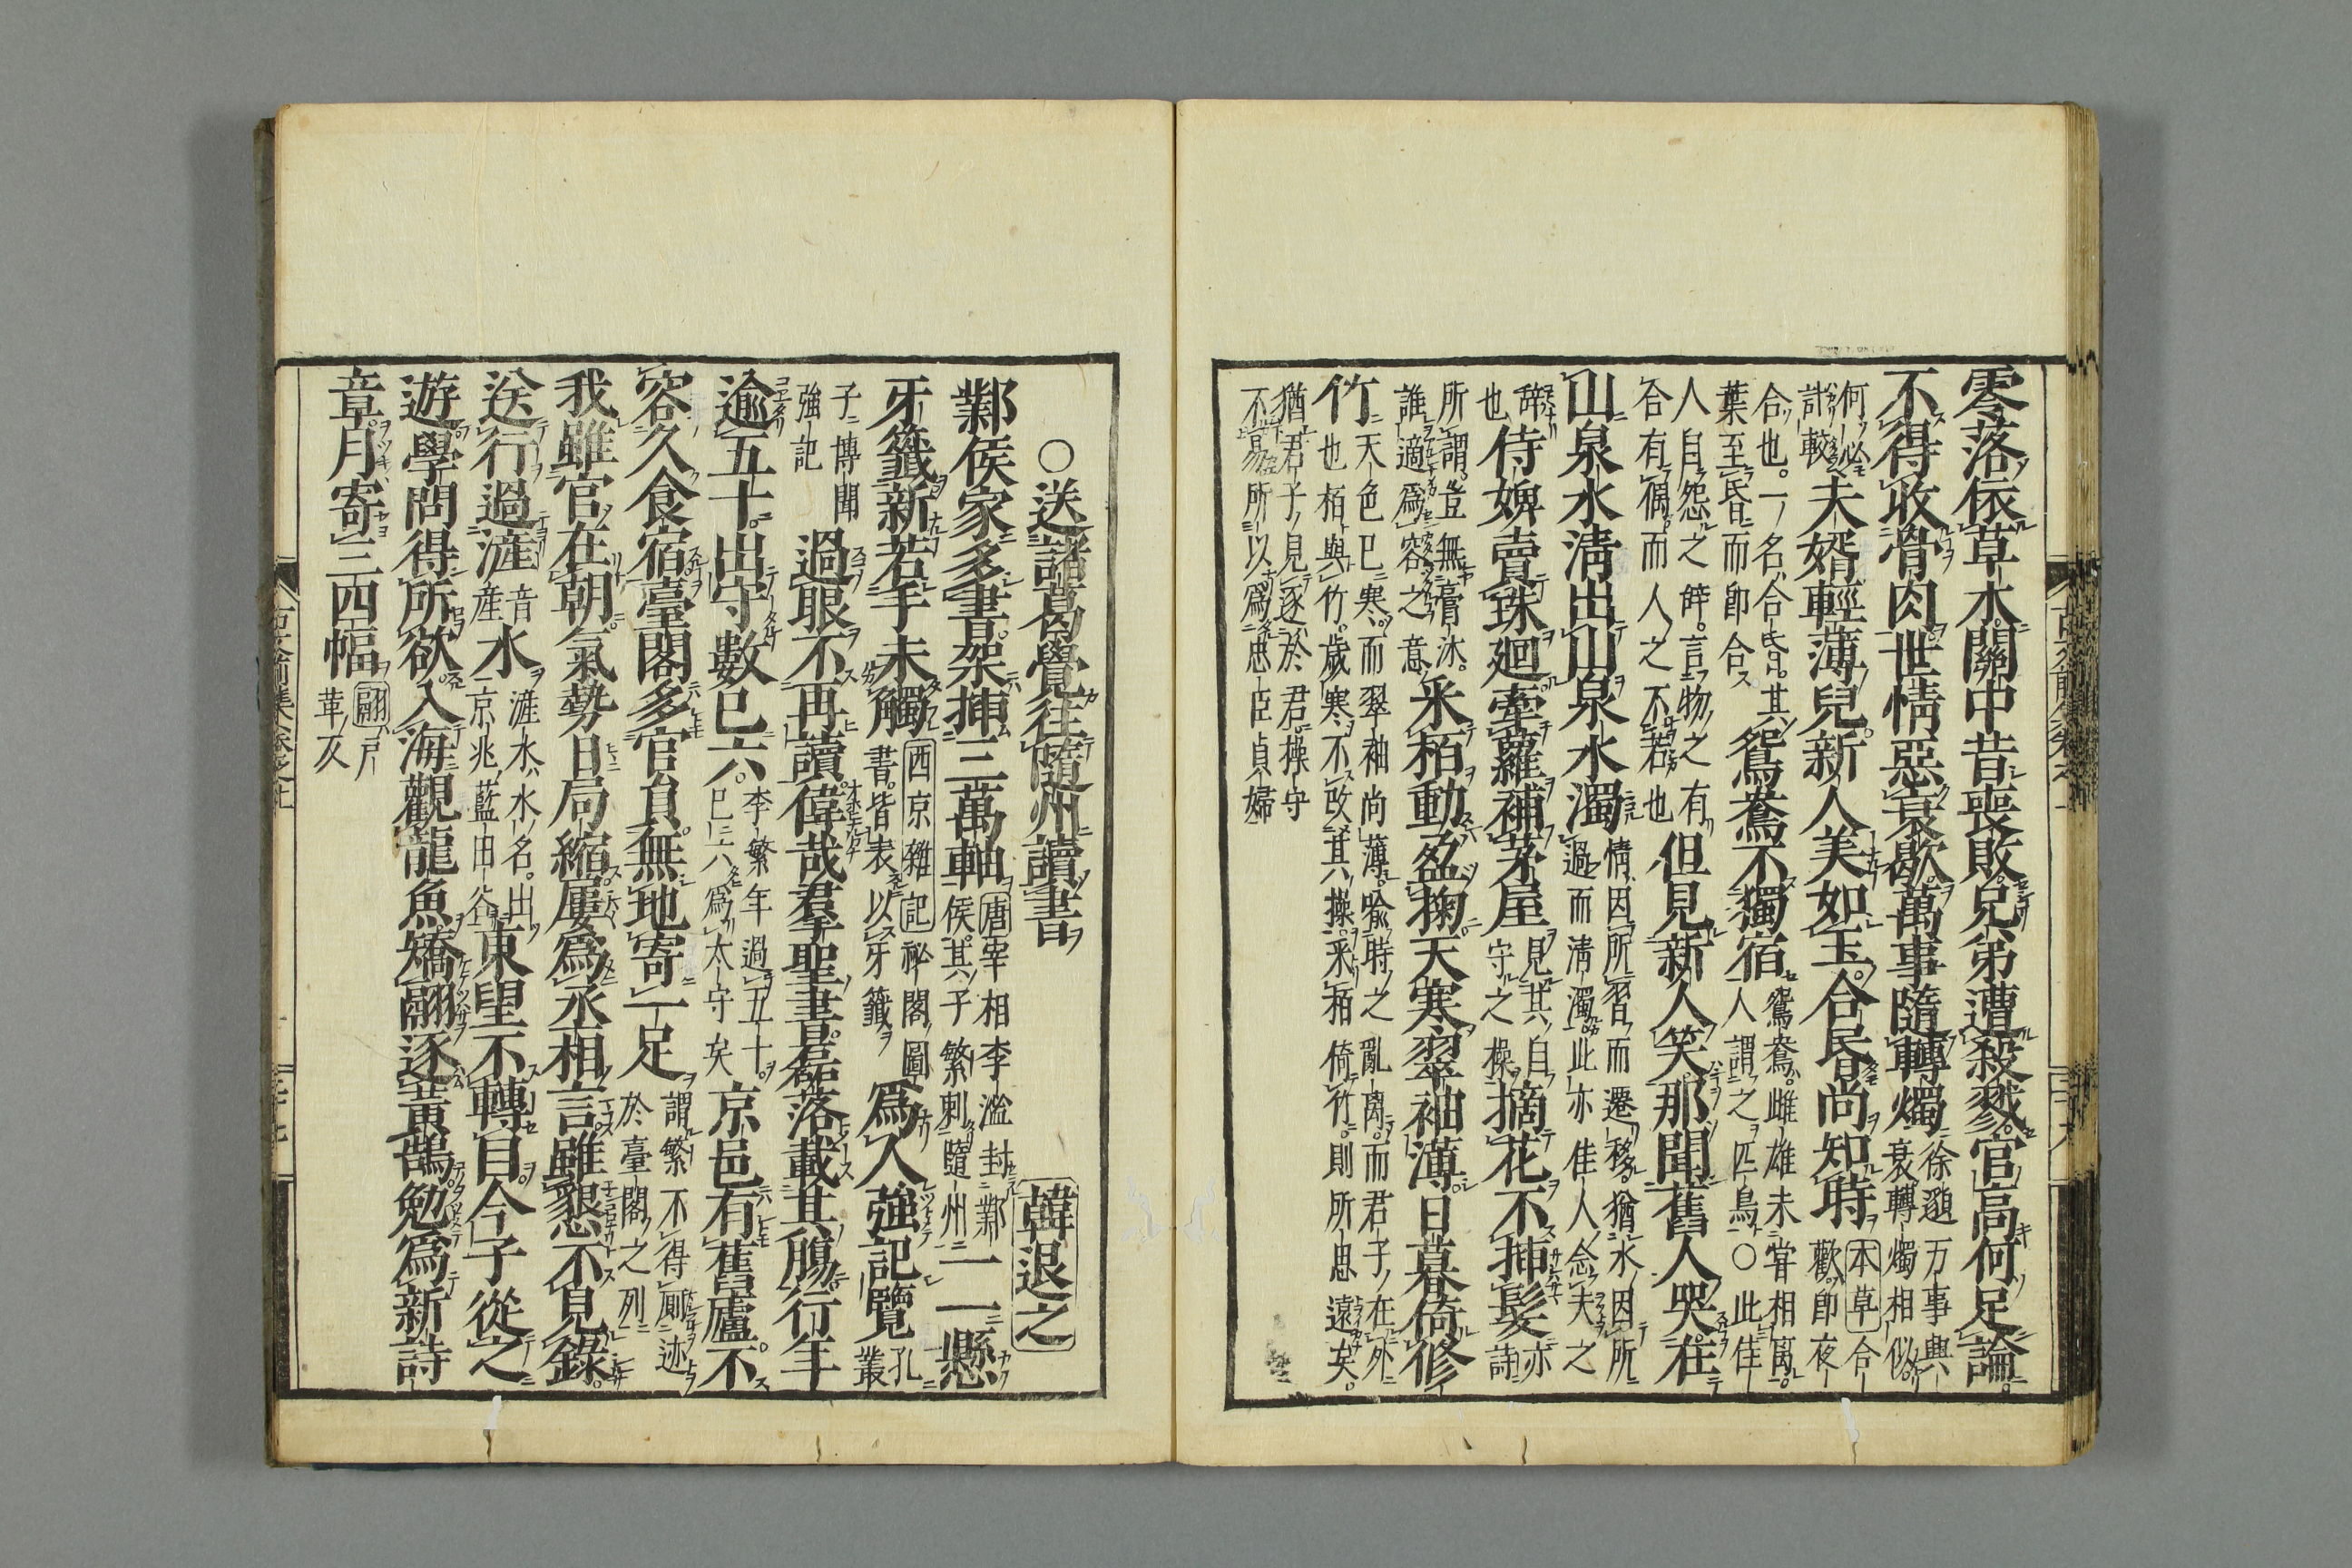 零落依草木關中昔喪敗兄弟遭殺戮官高何足論
不得收骨肉世情惡衰歇萬事隨轉燭
徐遯万事與衰轉燭相似
何必計較
夫婿輕薄兒新人美如玉合昬尚知時
本草合歡即夜合也一名合昏其葉至昏而即合
鴛鴦不獨宿
鴛鴦雌雄未甞相离人謂之匹鳥〇此佳人自怨之辞言物之有合有偶而人之不若也
但見新人笑那聞舊人哭在
山泉水淸出山泉水濁
情因所習而遷移猶水因所過而淸濁此亦佳人念夫之辞也
侍婢賣珠廻牽蘿補茅屋
見其自守之操
摘花不揷髮
亦詩所謂豈無膏沐誰適爲容之意
采栢動盈掬天寒翠袖薄日暮倚修
竹
天色已寒而翠袖尚薄喩時之亂离而君子在外也栢與竹歲寒不改其操采栢倚竹則所思遠矣
猶君子見逐於君操守不易所以爲忠臣貞婦
〇送諸葛覺往隨州讀書
韓退之
鄴侯家多書架揷三萬軸
唐宰相李泌封鄴侯其子繁刺隨州
一一懸
牙籤新若手未觸
西京雜記祕閣圖書皆表以牙籤
爲人強記覽
孔叢子博聞強記
過眼不再讀偉哉羣聖書磊落載其膓行年
逾五十出守數已六
李繁年過五十已六爲太守矣
京邑有舊廬不
容久食宿臺閣多官員無地寄一足
謂繁不得厠迹於臺閣之列
我雖官在朝氣勢日局縮屢爲丞相言雖懇不見錄
送行過滻
音産
水
滻水水名出京兆藍田谷
東望不轉目今子從之
遊學問得所欲入海觀龍魚矯翮逐黃鵠勉爲新詩
章月寄三四幅
翮戸革反